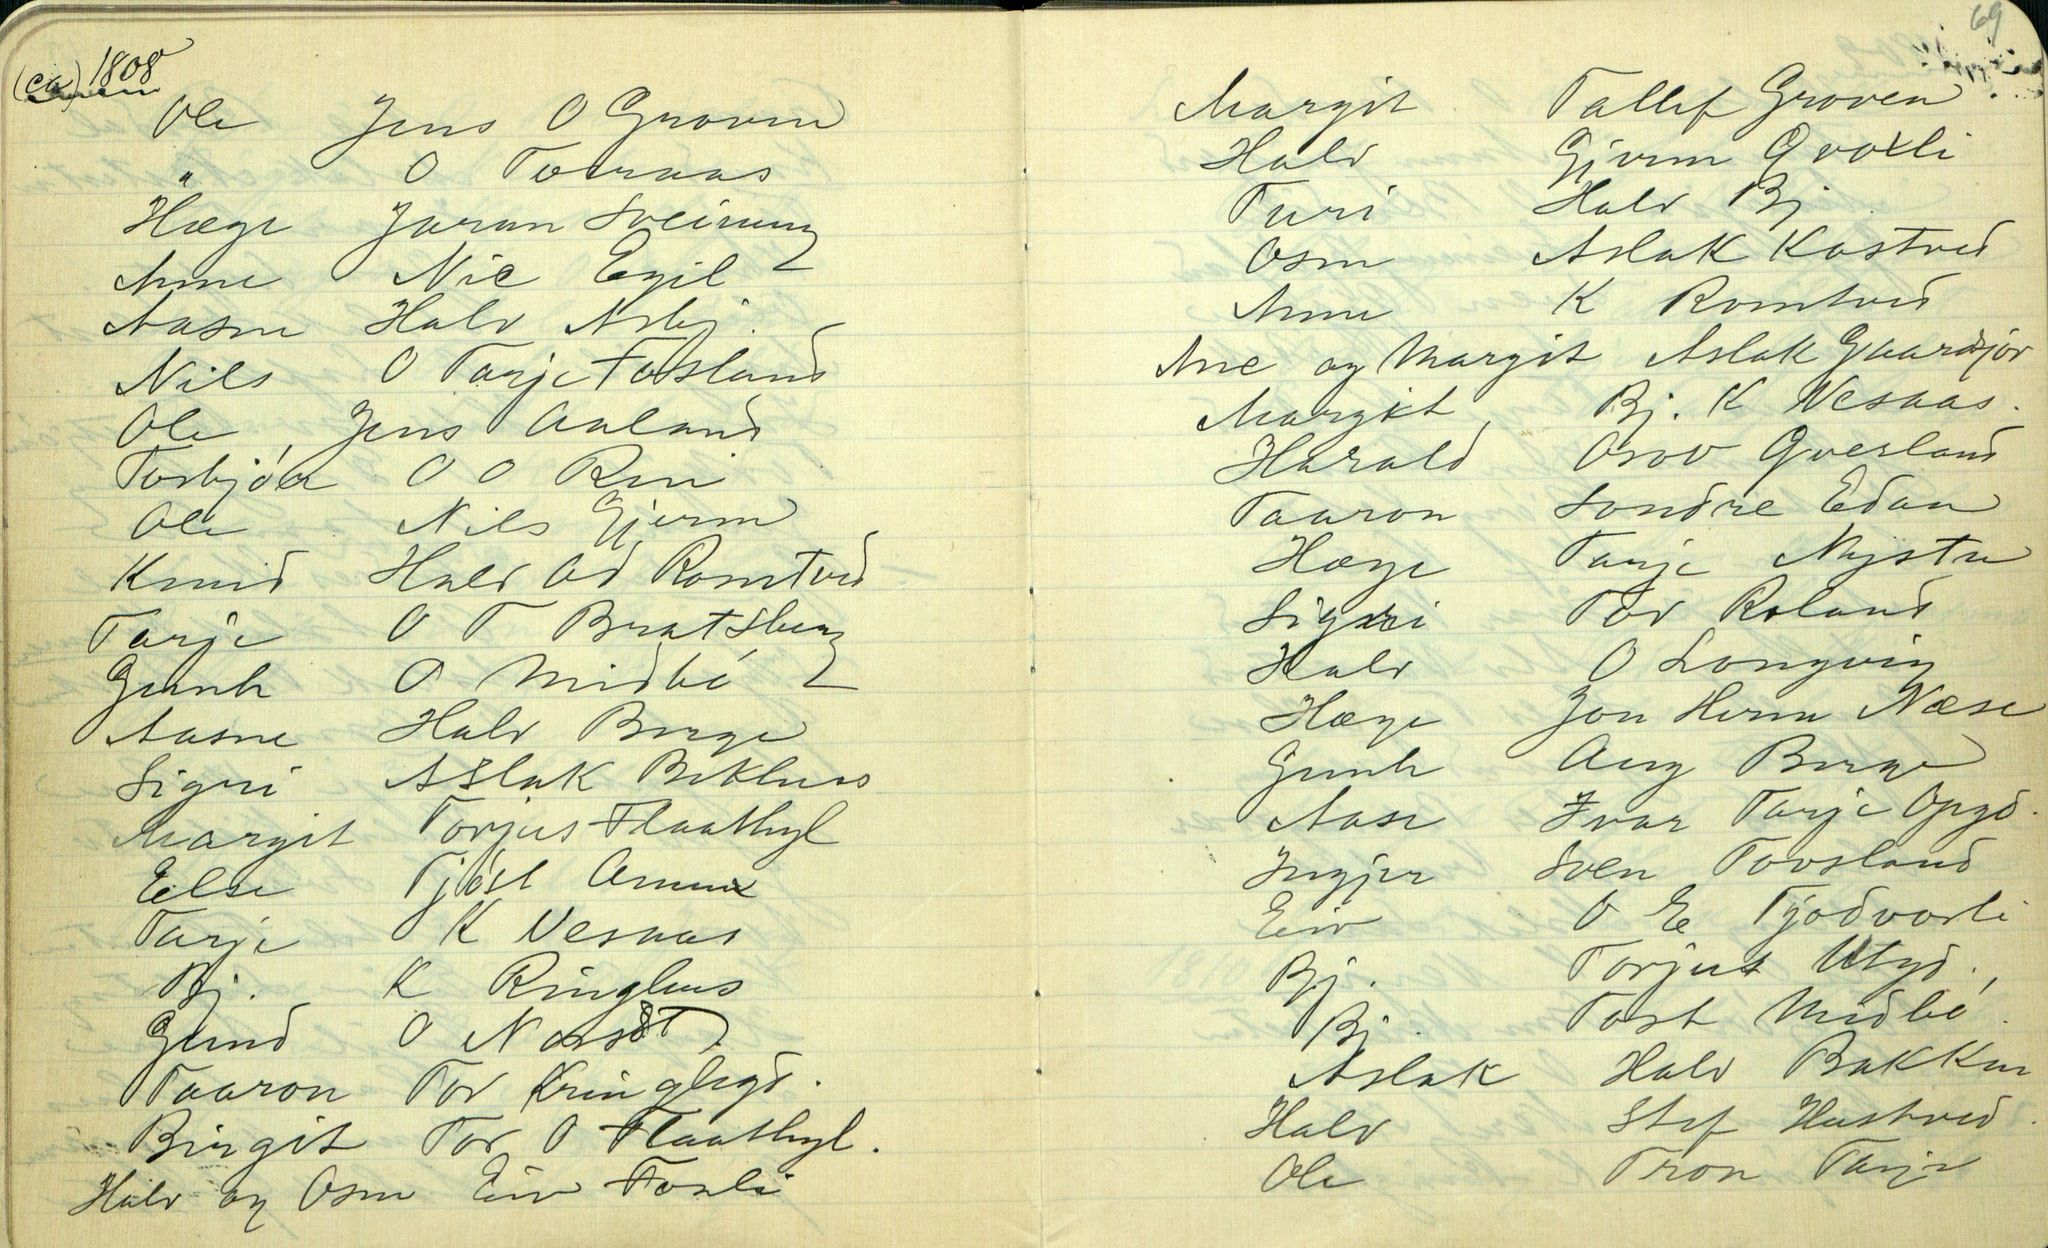 (ca) 1808
Ole Jens O Groven
" O Torraas
Hæge Jøran Sveinung
Anne Nic Egil
Aasne Halv Asbj.
Nils O Tarje Fosland
Ole Jens Aaland
Torbjör O O Rui
Ole Nils Gjerm
Knud Halv Od Romtved
Tarje O T Bratsberg
Gunh O Midbö
Aasne Halv Borge
Sigri Aslak Bekhus
Margit Torjus Flaathyl
Else Tjöst
Tarje K Vesaas
Bj. K Ringhus
Gund O
Taaron Tor Kringlegd.
Birgit Tor O Flaathyl.
Halv og Osm Eiv Fonli
69
Margit Tallef Groven.
Halv Gjerm Grovli
Turi Halv Bj
Osm Aslak Kostved
Anne K Romtved
Ane og Margit Aslak Gaardsjor
Margit Bj. K Vesaas.
Harald Osov Qverland
Taaron Sondre Edan
Hæge Tarje Nystu
Sigri Tor Roland
Halv O Longvig
Hæge Jon Herm Næse
Gunh Aug Borge
Aase Ivar Tarje Opgd.
Ingjer Sven Tovsland
Eiv O E Tjodvorli
Bj. Torjus Utgd.
Bj. Tost Midbö.
Aslak Halv Bakken
Halv Stef Hustved.
Ole Tron Tarje